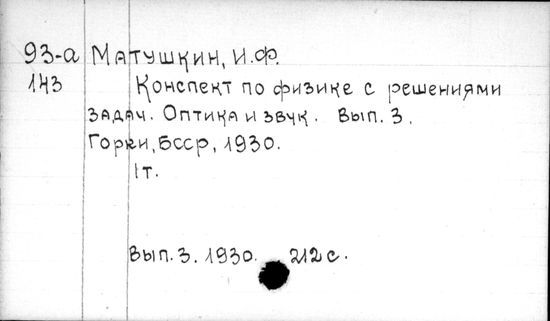 93-а Матушкин, И.Ф.
143 Конспект по физике с решениями
задач. Оптика и звук. Вып. 3.
Горки, БССР, 1930.
1т.
Вып. 3. 1930. 212 с.